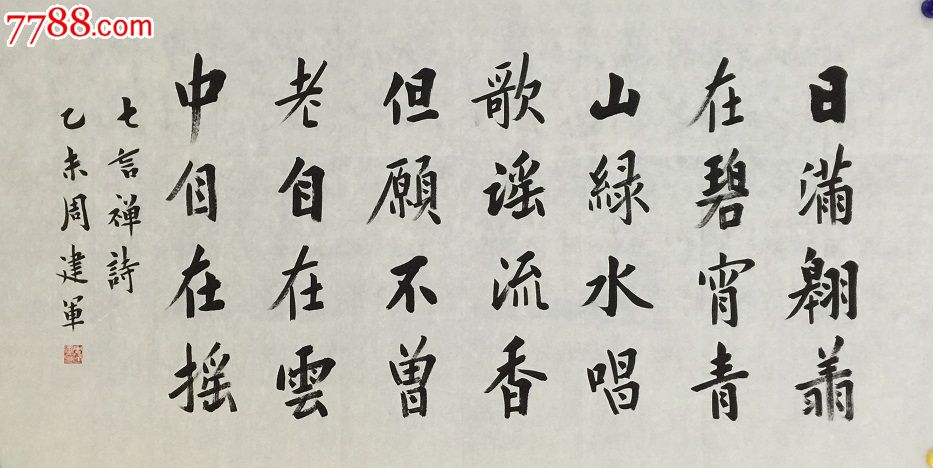 7788.com
日滿翱翔
在碧宵青
山緑水唱
歌谣流香
但願不曾
老自在雲
中自在摇
七言禅詩
乙未周建軍